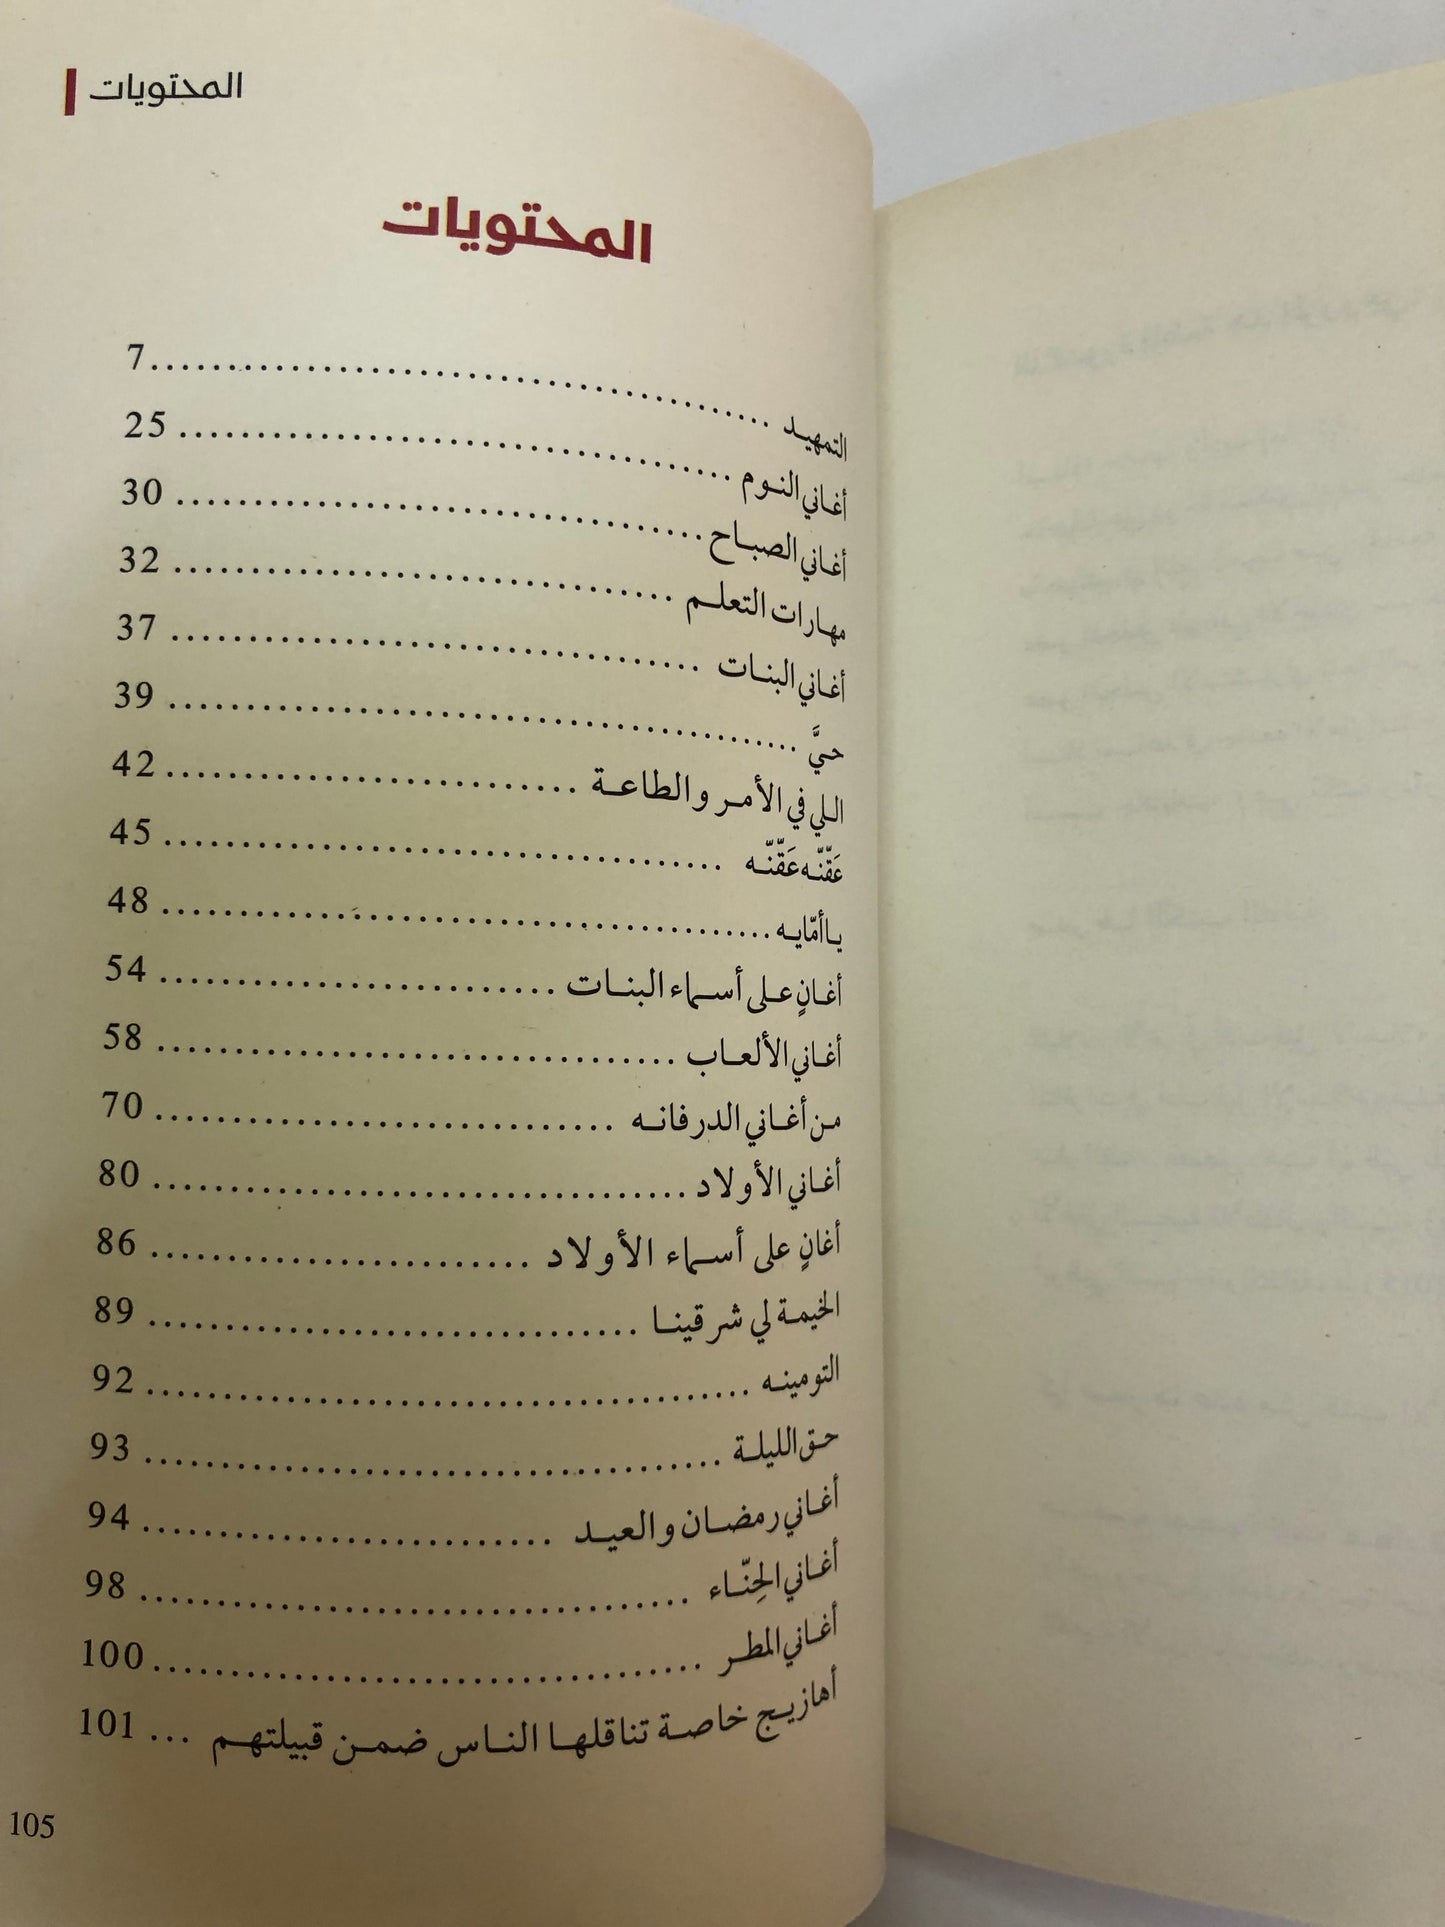 المحتويات
المحتويات
التمهيد ........................................ 7
أغاني النوم ................................... 25
أغاني الصباح .................................. 30
مهارات التعلم ................................ 32
أغاني البنات .................................. 37
حيَّ ......................................... 39
اللي في الأمر والطاعة ........................... 42
عَقّنّه عَقّنّه .................................... 45
يا أمّايه ....................................... 48
أغانٍ على أسماء البنات .......................... 54
أغاني الألعاب .................................. 58
من أغاني الدرفانه .............................. 70
أغاني الأولاد .................................. 80
أغانٍ على أسماء الأولاد ......................... 86
الخيمة لي شرقينا ............................... 89
التومينه ....................................... 92
حق الليلة ..................................... 93
أغاني رمضان والعيد ........................... 94
أغاني الحِنّاء ................................... 98
أغاني المطر ................................... 100
أهازيج خاصة تناقلها الناس ضمن قبيلتهم ... 101
105